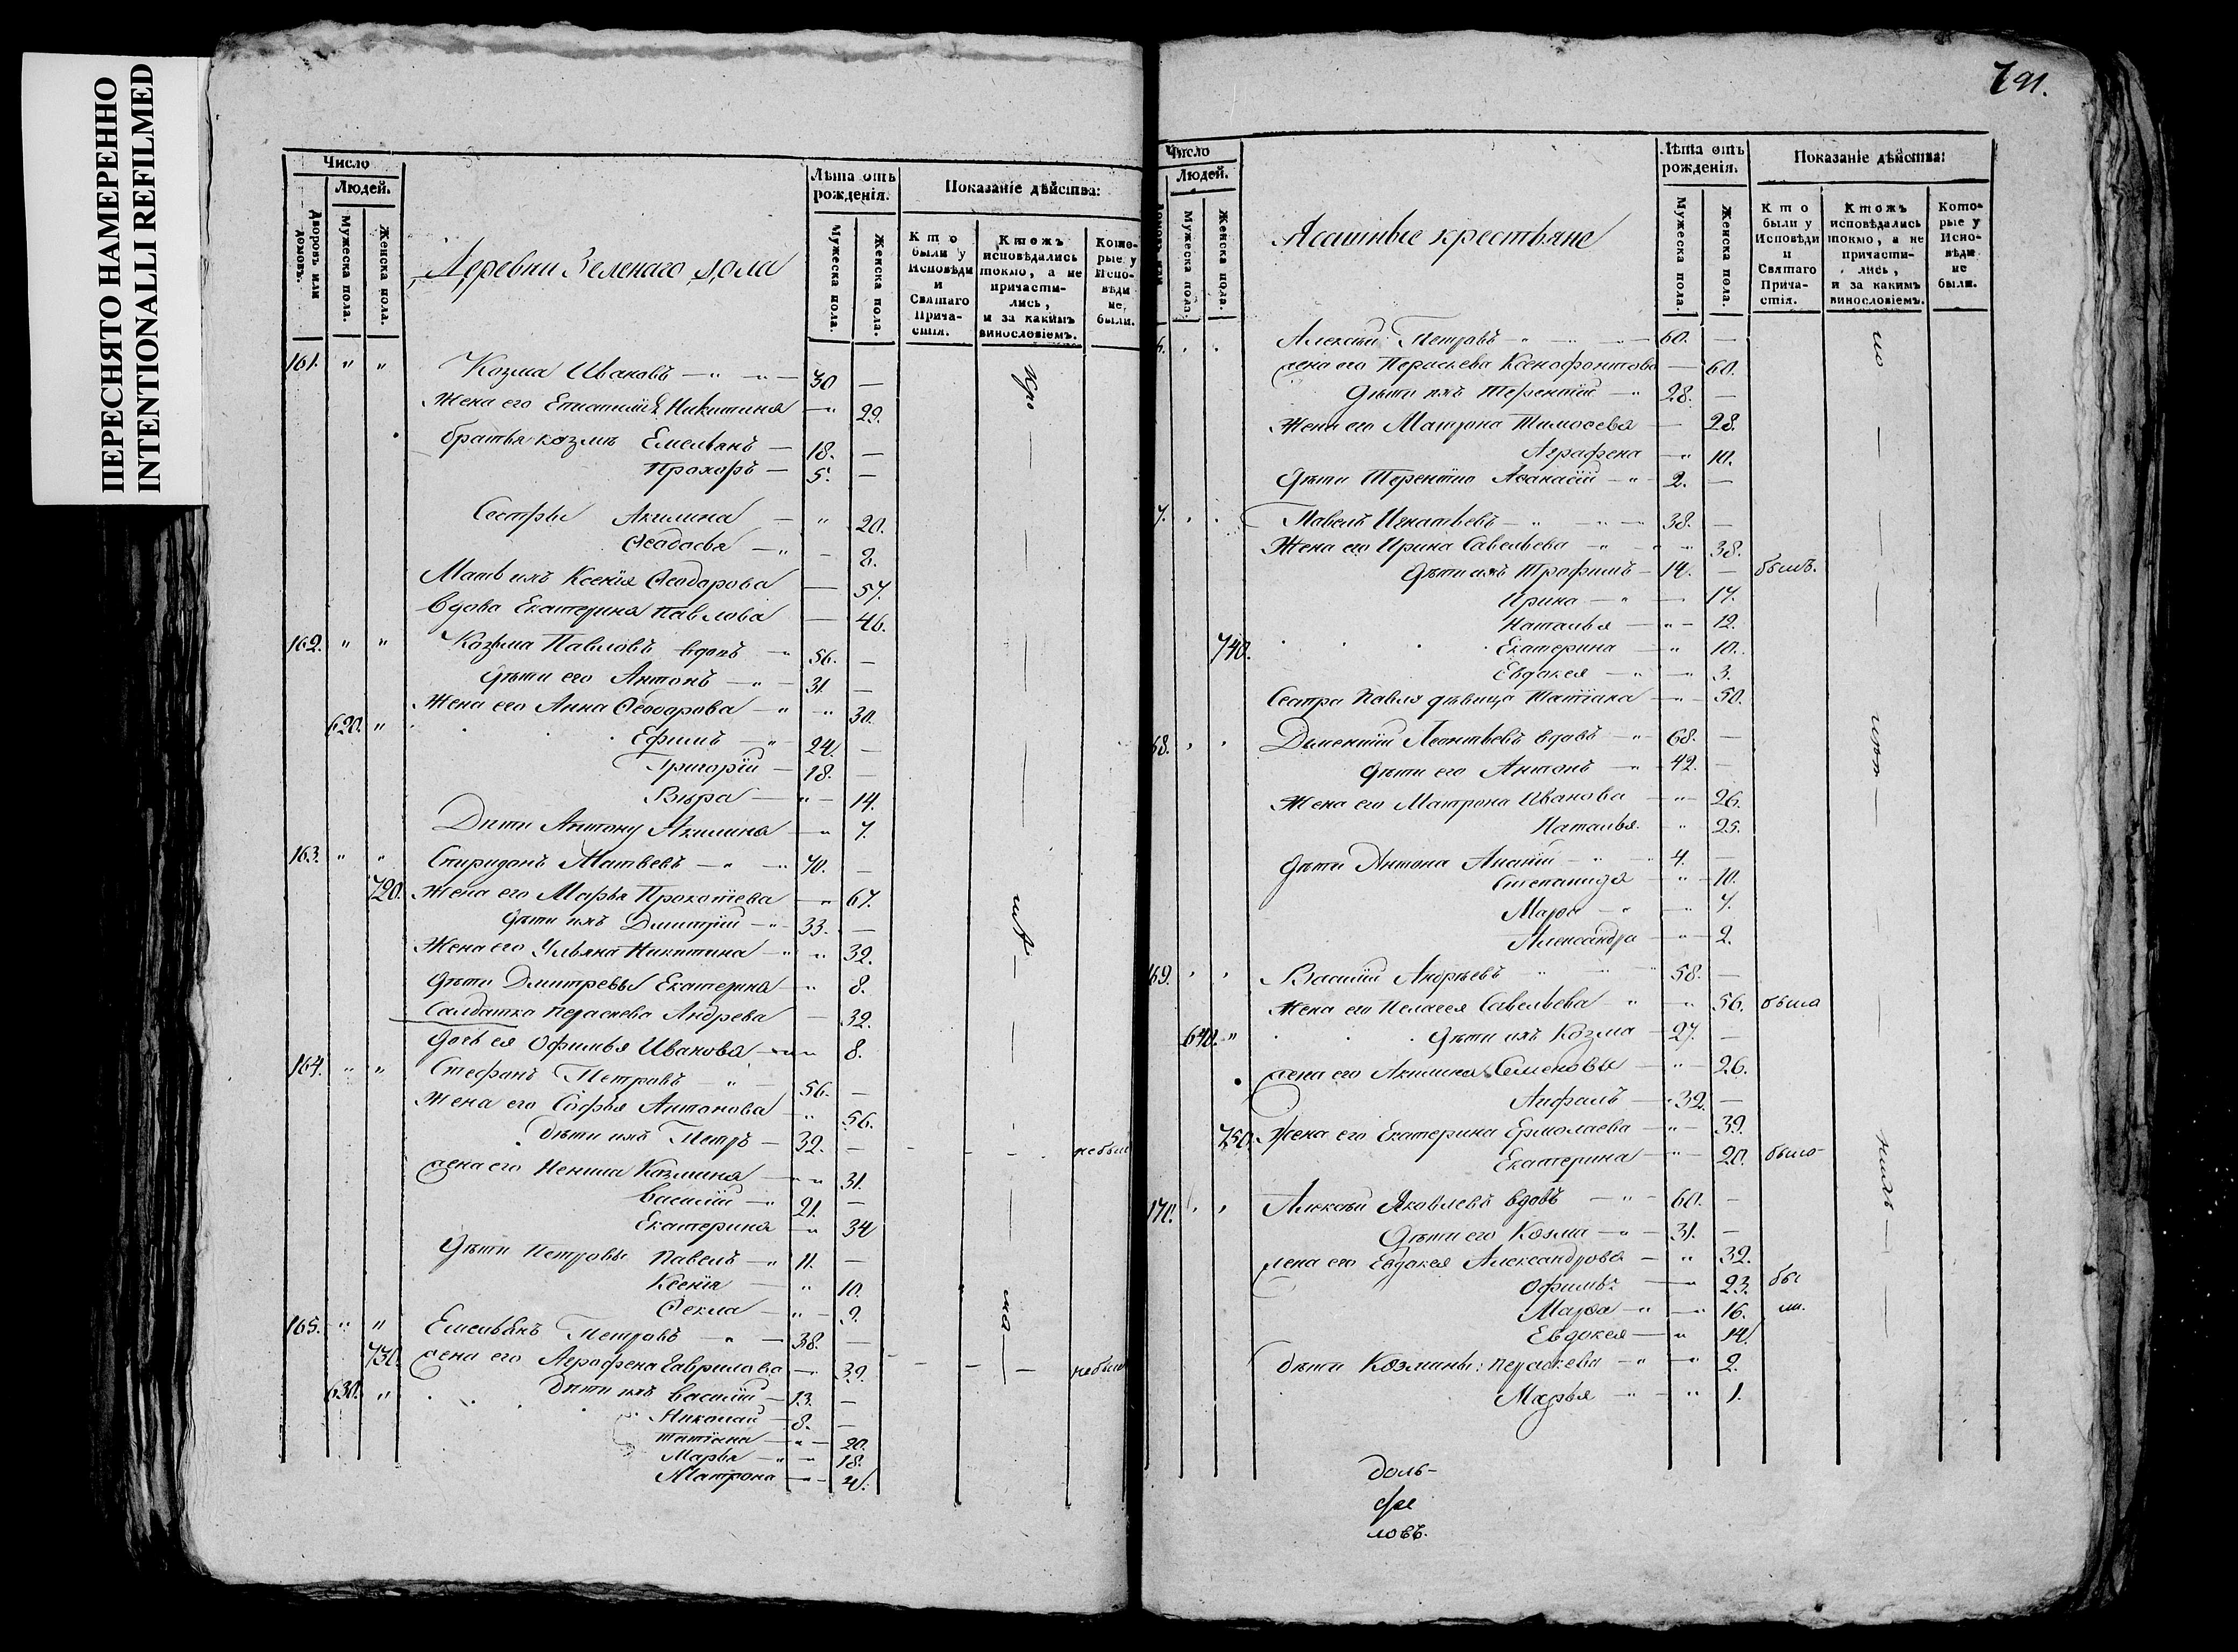 ПЕРЕСНЯТО НАМЕРЕННО
INTENTIONALLI REFILMED
Число
Людей.
Дворовъ или домовъ.
Мужеска пола.
Женска пола.
Деревни Зеленаго Дола
Лѣта отъ рожденія.
Мужеска пола.
Женска пола.
Показаніе дѣйства:
Кто были у Исповѣди и Святаго Причастія.
Ктожъ исповѣдались токмо, а не причастились, и за какимъ винословіемъ.
Которые у Исповѣди не были.
161. " " Козма Ивановъ — " — " — 30 —
Жена его Никитина — " 29.
братья козмы Емельянъ — 18. —
Прохоръ — 5. —
Сестры Акилина — " 20.
Ѳеодосья — " — 2.
Мать ихъ Ксенія Ѳеодорова — 57.
вдова Екатерина Павлова — 46.
162. " " Козьма Павловъ вдовъ — " 56. —
Дѣти его Антонъ — " — 31. —
Жена его Анна Ѳеодорова — " — " 30.
620. " Ефимъ — " 24. —
Григорій — 18. —
Вѣра — " — 14.
Дѣти Антону Акилина — " 7.
163. " " Спиридонъ Матвѣевъ — " — " 70. —
720. Жена его Марья Прокопіева — " 67.
Дѣти ихъ Димитрій — " 33. —
Жена его Ульяна Никитина — " " 32.
Дѣти Дмитревы Екатерина — " 8.
Салдатка Параскева Андрева — 32.
Дочь ея Офимья Иванова — " 8.
164. " " Стефанъ Петровъ " — 56. —
Жена его Софья Антонова — " 56.
Дѣти ихъ Петръ — 32. — небыл
жена его Козмина — " 31.
Василій — " 21. —
Екатерина — " 34
Дѣти Петровы Павелъ — " 11. —
Ксенія — " 10.
Ѳекла — " — 2.
165. " " Емельянъ Петровъ — " — 38. —
730. жена его Агрофена Гаврилова — 39. небыл
630. " Дѣти ихъ Василій — 13. —
Николай — 8. —
Татіана — " — 20.
Марья — " — 18.
Матрона — " — 4.
791.
Число
Людей.
Мужеска пола.
Женска пола.
Ясашные крестьяне
Лѣта отъ рожденія.
Мужеска пола.
Женска пола.
Показаніе дѣйства:
Кто были у Исповѣди и Святаго Причастія.
Ктожъ исповѣдались токмо, а не причастились, и за какимъ винословіемъ.
Которые у Исповѣди не были.
6. Алексѣй Петровъ — " — 60. —
жена его Параскева Ксенофонтова — 60.
Дѣти ихъ Терентій — " 28. —
Жена его Матрона Тимоѳеева — 28.
Аграфена — " 10.
Дѣти Терентію Аѳанасій — " 2. —
7. Павелъ Игнатьевъ — " — " — 38. —
Жена его Ирина Савельева — " — " 38.
Дѣти ихъ Трофимъ — 14. — былъ.
Ирина — " — 17.
Наталья — " — 12.
740. Екатерина — " 10.
Евдокея — " — " 3.
Сестра Павла дѣвица Татіана — " — 50.
68. Дементій Леонтьевъ вдовъ — " 68. —
Дѣти его Антонъ — " 42. —
Жена его Матрона Иванова — " — 26.
Наталья. — " 25.
Дѣти Антона Ананій — " — 4. —
Степанида — " — 10.
Марѳа — " — 7.
Александра — " — 2.
169. Василій Андрѣевъ — " — 58. —
Жена его Пелагея Савельева " — " 56. была
640. " Дѣти ихъ Козма — 27. —
жена его Акилина Семеновы — " — 26.
32. —
750. Жена его Екатерина Ермолаева — " — 39.
Екатерина — " — 20. была
170. Алексѣй Яковлевъ вдовъ — " — 60. —
Дѣти его Козма — " 31. —
жена его Евдокея Александрова — " 32.
Офимья — " 23. бы
Марѳа — " — " 16. ли.
Евдокея — " 14.
Дѣти Козмины: Параскева — " — " 2.
Марья — " — " 1.
доль-
ловъ.